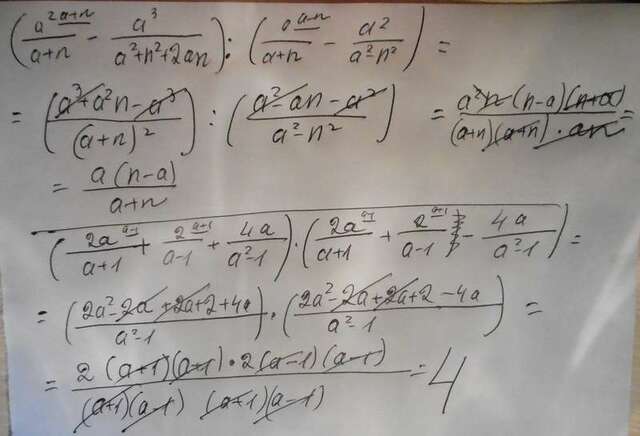 (a² a+n / a+n - a³ / a²+n²+2an) : (a a-n / a+n - a² / a²-n²) =
= (a³+a²n-a³ / (a+n)²) : (a²-an-a² / a²-n²) = a²n(n-a)(n+a) / (a+n)(a+n)·an =
= a(n-a) / a+n
(2a a-1 / a+1 + 2 a+1 / a-1 + 4a / a²-1)·(2a a-1 / a+1 + 2 a+1 / a-1 - 4a / a²-1) =
= (2a²-2a+2a+2+4a / a²-1)·(2a²-2a+2a+2-4a / a²-1) =
= 2(a+1)(a+1)·2(a-1)(a-1) / (a+1)(a-1) (a+1)(a-1) = 4